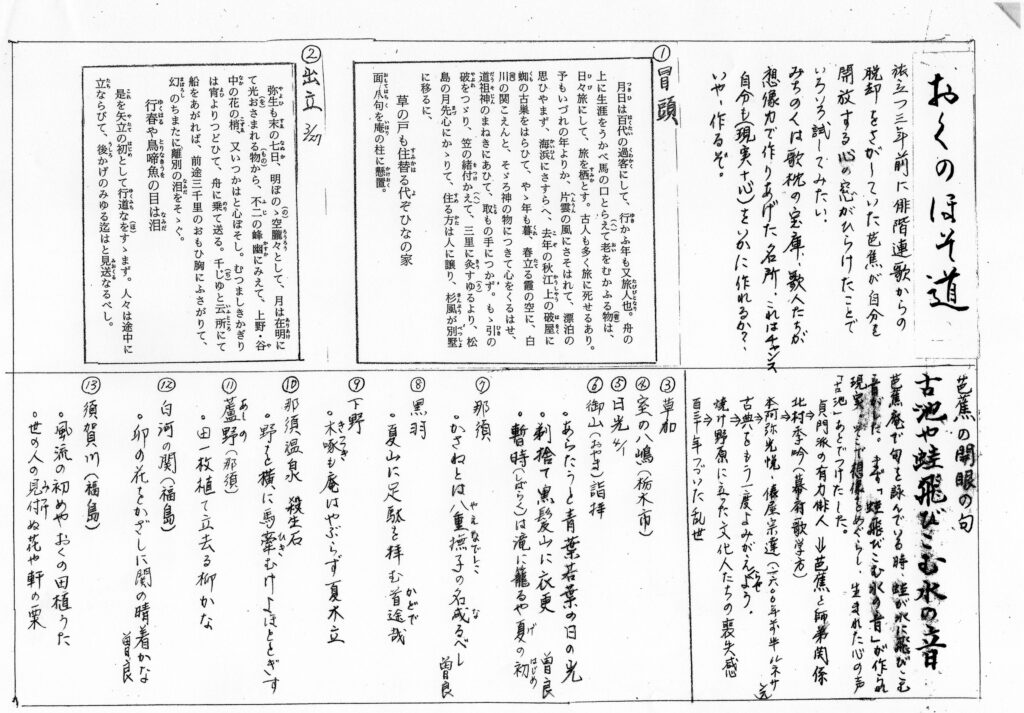 おくのほそ道
旅立つ三年前に俳階連歌からの
脱却をさがしていた芭蕉が自分を
開放する心の窓がひらけたことで
いろいろ試してみたい。
みちのくは歌枕の宝庫、歌人たちが
想像力で作りあげた名所、これはチャンス
自分も(現実+心)をいかに作れるか?、
いや、作るぞ。
①冒頭
月日は百代の過客にして、行かふ年も又旅人也。舟の
上に生涯をうかべ馬の口とらえて老をむかふる物は、
日々旅にして、旅を栖とす。古人も多く旅に死せるあり。
予もいづれの年よりか、片雲の風にさそはれて、漂泊の
思ひやまず、海浜にさすらへ、去年の秋江上の破屋に
蜘の古巣をはらひて、やゝ年も暮、春立る霞の空に、白
川の関こえんと、そゞろ神の物につきて心をくるはせ、
道祖神のまねきにあひて、取もの手につかず。もゝ引の
破をつゞり、笠の緒付かえて、三里に灸すゆるより、松
島の月先心にかゝりて、住る方は人に譲り、杉風が別墅
に移るに、
草の戸も住替る代ぞひなの家
面八句を庵の柱に懸置。
②出立 3/27
弥生も末の七日、明ぼのゝ空朧々として、月は在明に
て光おさまれる物から、不二の峰幽にみえて、上野・谷
中の花の梢、又いつかはと心ぼそし。むつましきかぎり
は宵よりつどひて、舟に乗て送る。千じゆと云所にて
船をあがれば、前途三千里のおもひ胸にふさがりて、
幻のちまたに離別の泪をそゝぐ。
行春や鳥啼魚の目は泪
是を矢立の初として行道なをすゝまず。人々は途中に
立ならびて、後かげのみゆる迄はと見送なるべし。
芭蕉の開眼の句
古池や蛙飛びこむ水の音
芭蕉庵で句を詠んでいる時、蛙が水に飛びこむ
音がした。まず「蛙飛びこむ水の音」が作られ
現実 想像をめぐらし、生まれた心の声
「古池」あとでつけたした。
貞門派の有力俳人 ⇒芭蕉と師弟関係
北村季吟(幕府歌学方)
⇒
本阿弥光悦・俵屋宗達(一六〇〇年前半ルネサンス)
古典をもう一度よみがえらせよう。
⇒
焼け野原に立った文化人たちの喪失感
⇒
百三十年つづいた乱世
③草加
④室の八嶋(栃木市)
⑤日光 4/1
⑥御山(おやま)詣拝
・あらたうと青葉若葉の日の光
・剃捨て黒髪山に衣更 曽良
・暫時(しばらく)は滝に籠るや夏の初
⑦那須
・かさねとは八重撫子の名成るべし 曽良
⑧黒羽
・夏山に足駄を拝む首途哉
⑨下野
・木啄も庵はやぶらず夏木立
⑩那須温泉 殺生石
・野を横に馬牽むけよほととぎす
⑪蘆野(那須)
・田一枚植て立去る柳かな
⑫白河の関(福島)
・卯の花をかざしに関の晴着かな 曽良
⑬須賀川(福島)
・風流の初めやおくの田植うた
・世の人の見付ぬ花や軒の栗